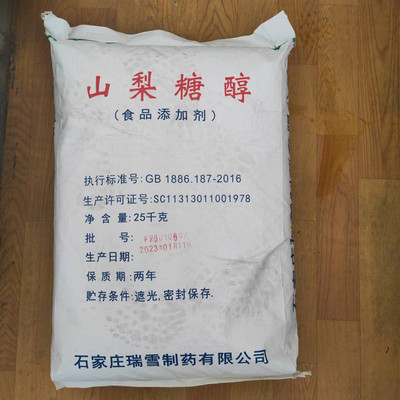 山梨糖醇
(食品添加剂)
执行标准号:GB 1886.187-2016
生产许可证号:SC11313011001978
净 含 量:25千克
批 号:
生产日期:
保 质 期:两年
贮存条件:遮光,密封保存.
石家庄瑞雪制药有限公司